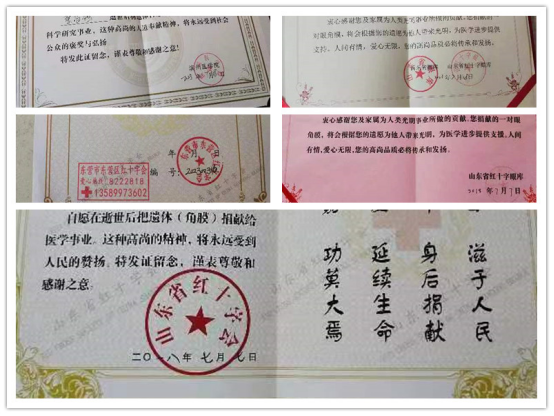 科学研究事业，这种高尚的人道奉献精神，将永远受到社会
公众的褒奖与弘扬
特发此证留念，谨表尊敬和感谢之意！
衷心感谢您及家属为人类光明事业所做的贡献，您捐献的一对
眼角膜，将会根据您的遗愿为他人带来光明，为医学进步提供
支持。人间有情，爱心无限，您的高尚品质必将传承和发扬。
山东省红十字眼库
年 月
编号：
东营市东营区红十字会
爱心热线：8222818
13589973602
衷心感谢您及家属为人类光明事业所做的贡献，您捐献的一对眼
角膜，将会根据您的遗愿为他人带来光明，为医学进步提供支援。人间
有情，爱心无限，您的高尚品质必将传承和发扬。
山东省红十字眼库
2018年7月7日
自愿在逝世后把遗体（角膜）捐献给
医学事业。这种高尚的精神，将永远受到
人民的赞扬。特发证留念，谨表尊敬和
感谢之意。
山东省红十字会
二〇一八年七月七日
滋于人民
身后捐献
延续生命
功莫大焉